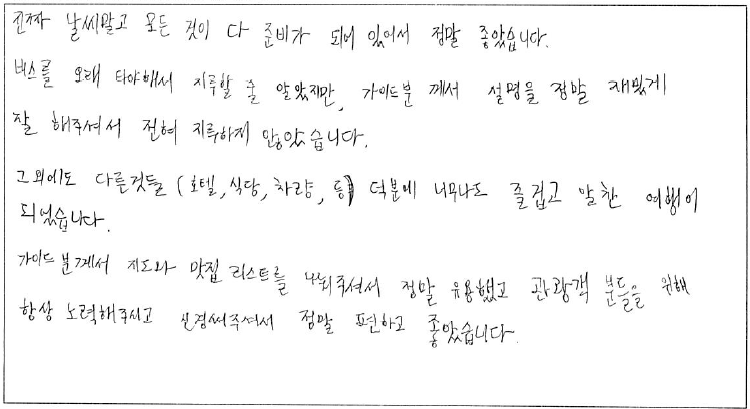 진짜 날씨말고 모든 것이 다 준비가 되어 있어서 정말 좋았습니다.
버스를 오래 타야해서 지루할 줄 알았지만, 가이드분 께서 설명을 정말 재밌게
잘 해주셔서 전혀 지루하지 않았습니다.
그외에도 다른것들 (호텔, 식당, 차량, 등) 덕분에 너무나도 즐겁고 알찬 여행이
되었습니다.
가이드 분께서 지도와 맛집 리스트를 나눠주셔서 정말 유용했고 관광객 분들을 위해
항상 노력해주시고 신경써주셔서 정말 편하고 좋았습니다.